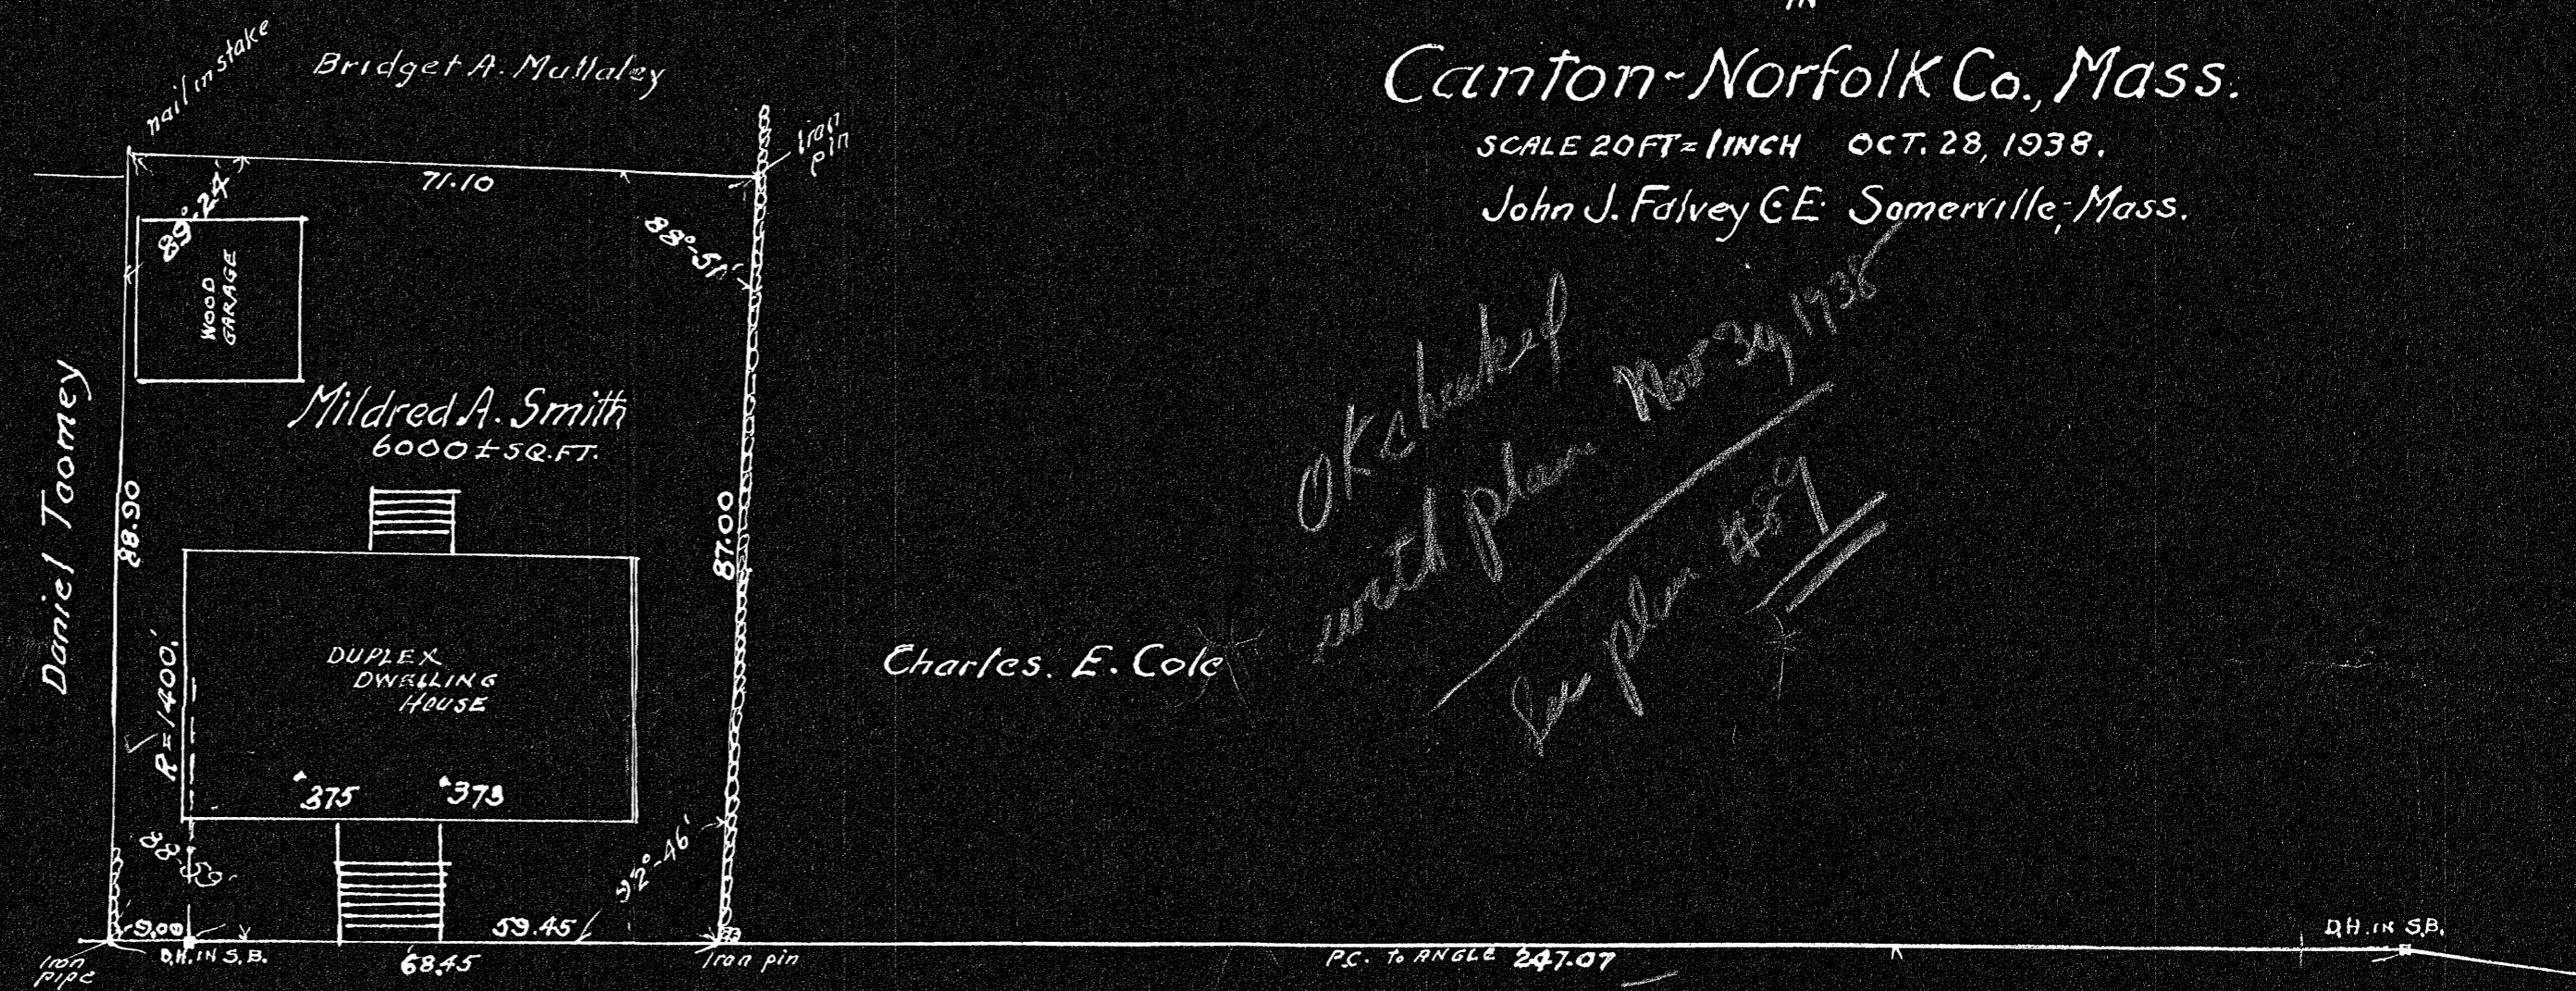 IN
Canton-Norfolk Co., Mass.
SCALE 20FT = 1 INCH OCT. 28, 1938.
John J. Falvey C.E. Somerville, Mass.
nail in stake
Bridget A. Mullaley
Iron
pin
71.10
89°-24'
88°-51'
WOOD
GARAGE
Daniel Toomey
Mildred A. Smith
6000 ± SQ.FT.
88.90
87.00
R=1400.'
DUPLEX
DWELLING
HOUSE
375
373
Charles. E. Cole
OK checked
with plan Nov 30, 1938
See plan 489
92°-46'
9.00
59.45
Iron
pipe
D.H. IN S.B.
68.45
Iron pin
P.C. To ANGLE 247.07
D.H. IN S.B.